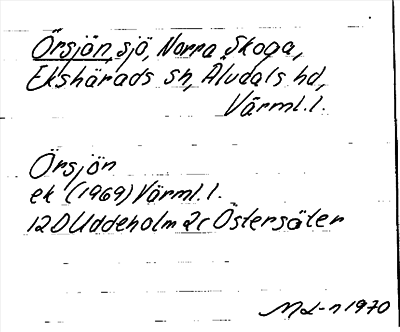 Örsjön, sjö, Norra Skoga,
Ekshärads sn, Älvdals hd,
Värml.l.
Örsjön
ek (1969) Värml.l.
12D Uddeholm 2c Östersäter
1970